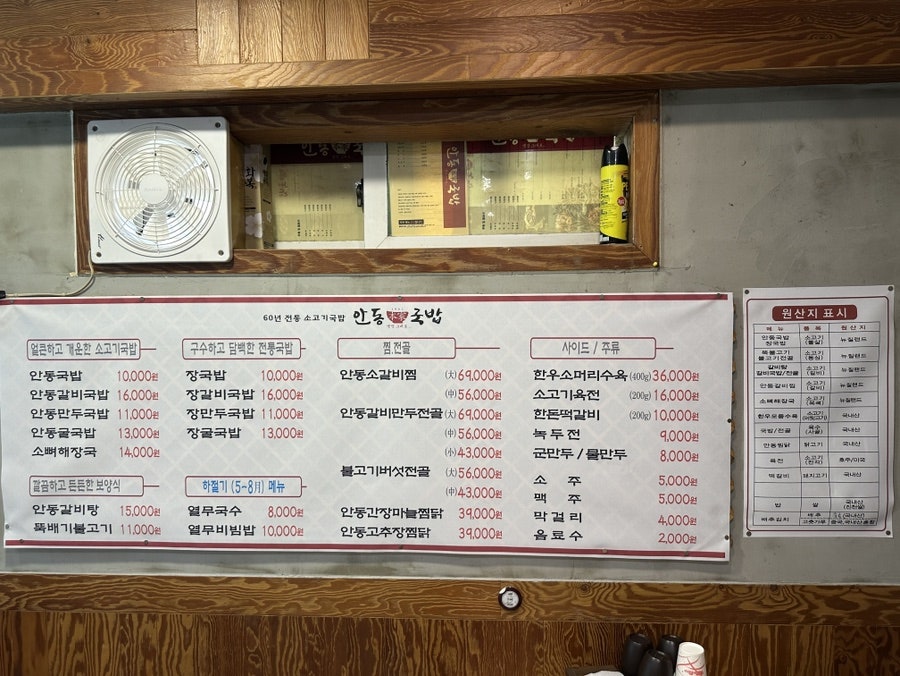 안동국밥
60년 전통 소고기국밥 안동국밥
얼큰하고 개운한 소고기국밥
안동국밥 10,000원
안동갈비국밥 16,000원
안동만두국밥 11,000원
안동굴국밥 13,000원
소뼈해장국 14,000원
구수하고 담백한 전통국밥
장국밥 10,000원
장갈비국밥 16,000원
장만두국밥 11,000원
장굴국밥 13,000원
찜.전골
안동소갈비찜 (大) 69,000원
(中) 56,000원
안동갈비만두전골 (大) 69,000원
(中) 56,000원
(小) 43,000원
불고기버섯전골 (大) 56,000원
(中) 43,000원
안동간장마늘찜닭 39,000원
안동고추장찜닭 39,000원
사이드 / 주류
한우소머리수육 (400g) 36,000원
소고기육전 (200g) 16,000원
한돈떡갈비 (200g) 10,000원
녹두전 9,000원
군만두 / 물만두 8,000원
소 주 5,000원
맥 주 5,000원
막걸리 4,000원
음료수 2,000원
깔끔하고 든든한 보양식
안동갈비탕 15,000원
뚝배기불고기 11,000원
하절기 (5~8月) 메뉴
열무국수 8,000원
열무비빔밥 10,000원
원산지 표시
메뉴 품목 원산지
안동국밥 장국밥 소고기 뉴질랜드
뚝불고기 불고기전골 소고기 뉴질랜드
갈비탕 갈비국밥/전골 소고기 (갈비) 뉴질랜드
안동갈비찜 소고기 (갈비) 뉴질랜드
소뼈해장국 소고기 뉴질랜드
한우모듬수육 소고기 국내산
국밥/전골 육수 (사골) 국내산
안동찜닭 닭고기 국내산
육전 소고기 호주/미국
떡갈비 돼지고기 국내산
밥 쌀 국내산
배추김치 배추 국내산
고춧가루 중국,국내산혼합